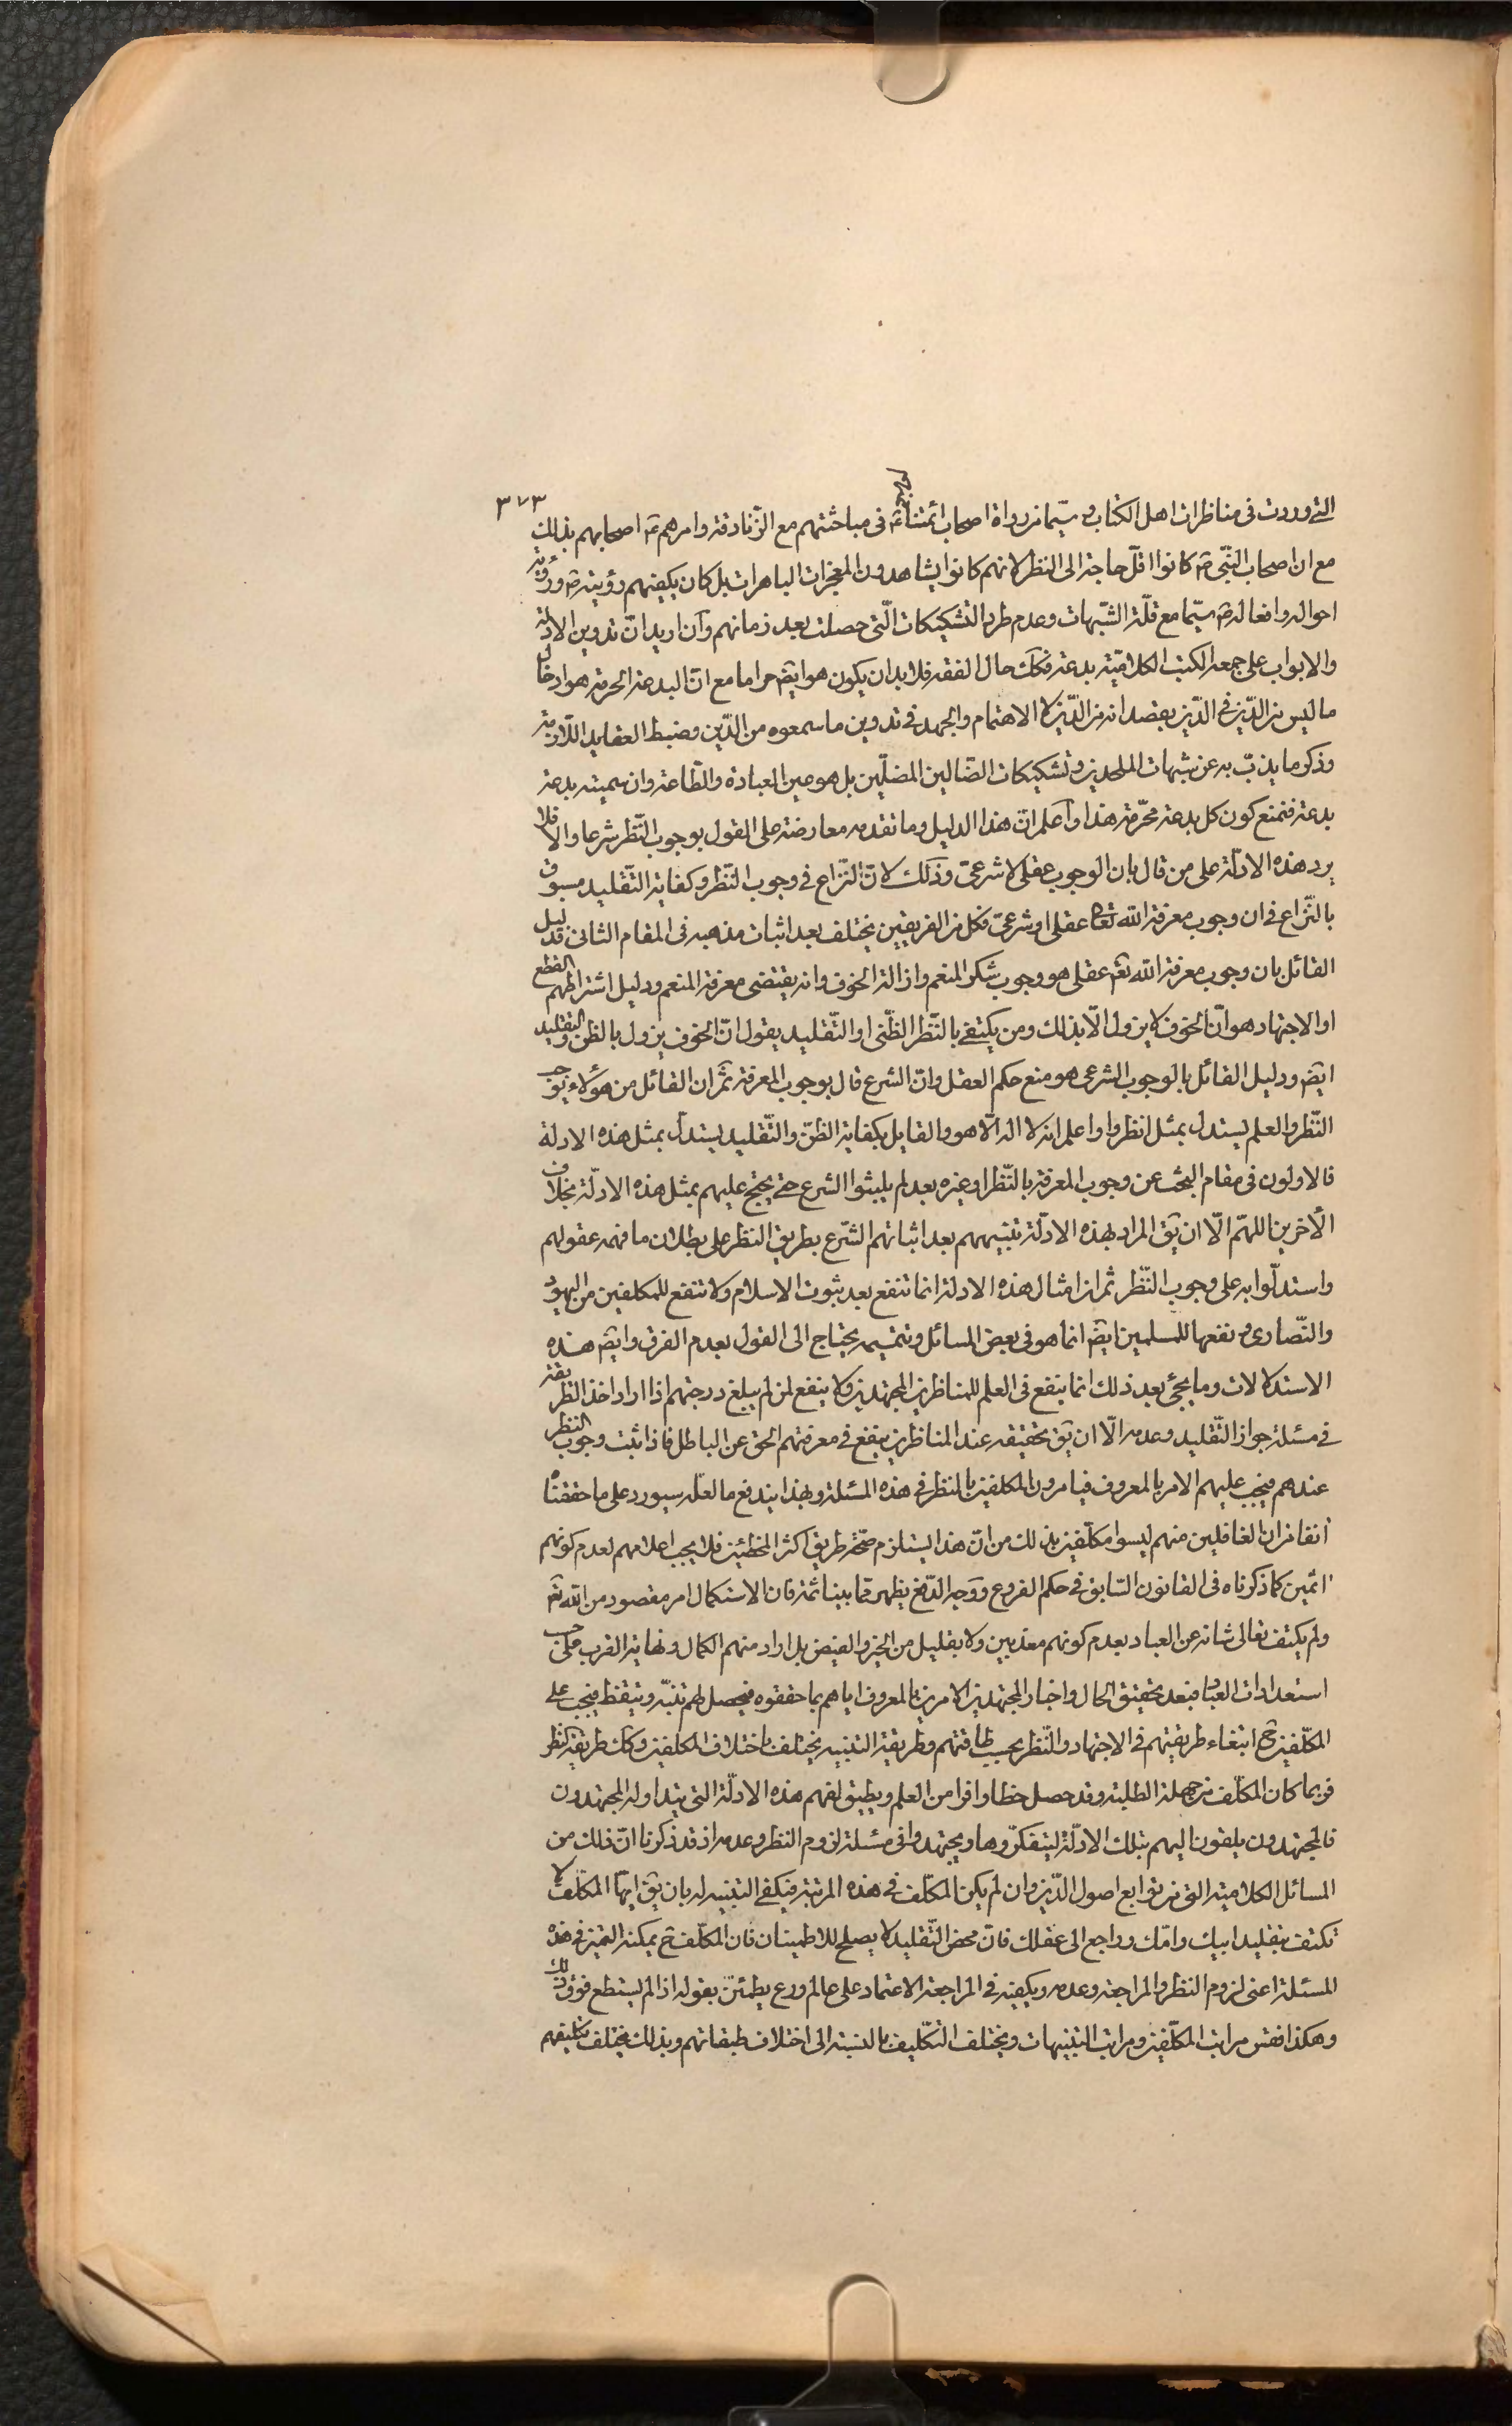 ٣٧٣
التى وردت فى مناظرات اهل الكتاب و سيّما من رواة اصحاب ائمتنا ع فى مباحثتهم مع الزّنادقة وامرهم ع اصحابهم بذلك
مع ان اصحاب النّبى ص كانوا اقلّ حاجة الى النظر لانهم كانوا يشاهدون المعجزات الباهرات بل كان يكفيهم رؤيته ص ورؤية
احواله وافعاله ص سيّما مع قلّة الشّبهات وعدم طرد التشكيكات الّتى حصلت بعد زمانهم وان اريد انّ تدوين الادلة
والابواب على جمعه الكتب الكلاميّة بدعة فكك حال الفقه فلا بد ان يكون هو ايضَ حراما مع انّ البدعة المحرمة هو ادخال
ما ليس من الدّين فى الدّين بقصد انه من الدّين لا الاهتمام والجهد فى تدوين ما سمعوه من الدّين وضبط العقايد اللّازمة
وذكر ما يذبّ به عن شبهات الملحدين وتشكيكات الضّالين المضلّين بل هو عين العبادة والطّاعة وان سميته بدعة
بدعة فنمنع كون كل بدعة محرّمة هذا واعلم انّ هذا الدليل وما تقدمه معارضة على القول بوجوب النّظر شرعا والا فلا
يرد هذه الادلّة على من قال بان الوجوب عقلى لا شرعىّ وذلك لانّ النّزاع فى وجوب النّظر وكفاية التّقليد مسبوق
بالنّزاع فى ان وجوب معرفة الله تعالى عقلى او شرعىّ فكل من الفريقين يختلف بعد اثبات مذهبه فى المقام الثانى فدليل
القائل بان وجوب معرفة الله تعَ عقلى هو وجوب شكر المنعم وازالة الخوف وانه يقتضى معرفة المنعم ودليل اشتراطهم القطع
او الاجتهاد هو انّ الخوف لا يزول الّا بذلك ومن يكتفى بالنّظر الظّنى او التّقليد يقول انّ الخوف يزول بالظن والتقليد
ايضَ ودليل القائل بالوجوب الشرعى هو منع حكم العقل وانّ الشرع قال بوجوب المعرفة ثمّ ان القائل من هؤلاء بوجوب
النّظر والعلم يستدل بمثل انظروا واعلم انه لا اله الّا هو والقايل بكفاية الظنّ والتّقليد يستدل بمثل هذه الادلة
فالاولون فى مقام البحث عن وجوب المعرفة بالنّظر او غيره بعد لم يثبتوا الشرع حتى يحتج عليهم بمثل هذه الادلّة بخلاف
الآخرين اللهمّ الّا ان يقَ المراد بهذه الادلّة تنبيههم بعد اثباتهم الشّرع بطريق النظر على بطلان ما فهمه عقولهم
واستدلّوا به على وجوب النّظر ثم ان امثال هذه الادلة انما تنفع بعد ثبوت الاسلام ولا تنفع للمكلفين من اليهود
والنّصارى و نفعها للمسلمين ايضَ انما هو فى بعض المسائل وتتميمه يحتاج الى القول بعدم الفرق وايضَ هذه
الاستدلالات وما يجئ بعد ذلك انما ينفع فى العلم للمناظرين المجتهدين ولا ينفع لمن لم يبلغ درجتهم اذا اراد اخذ الطريقة
فى مسئلة جواز التّقليد وعدمه الّا ان يقَ تحقيقه عند المناظرين ينفع فى معرفتهم الحق عن الباطل فاذا ثبت وجوب النظر
عندهم فيجب عليهم الامر بالمعروف فيامرون المكلفين بالنظر فى هذه المسئلة وبهذا يندفع ما لعلّه سيورد على ما حققناه
آنفا من ان الغافلين منهم ليسوا مكلّفين بذلك من انّ هذا يستلزم صحّة طريق اكثر المخطئين فلا يجب اعلامهم لعدم كونهم
اثمين كما ذكرناه فى القانون السّابق فى حكم الفروع ووجه الدّفع يظهر مما بينا ثمة فان الاستكمال امر مقصود من الله تعَ
ولم يكتف تعالى شانه عن العباد بعدم كونهم معذبين ولا بقليل من الخير والفيض بل اراد منهم الكمال ونهاية القرب على حسب
استعدادات العباد فبعد تحقيق الحال واخبار المجتهدين الامرين بالمعروف اياهم بما حققوه فيحصل لهم تنبّه وتيقظ فيجب على
المكلّفين ح ابتغاء طريقتهم فى الاجتهاد والنّظر بحسب طاقتهم وطريقة التنبيه يختلف باختلاف المكلفين وكك طريقة النظر
فربما كان المكلّف من جملة الطلبة وقد حصل حظا وافرا من العلم ويطيق لفهم هذه الادلّة التى يتداوله المجتهدون
فالمجتهدون يلقون اليهم بتلك الادلّة ليتفكرّوها ويجتهدوا فى مسئلة لزوم النظر وعدمه اذ قد ذكرنا انّ ذلك من
المسائل الكلامية التى من توابع اصول الدّين وان لم يكن المكلّف فى هذه المرتبة فيكفى التنبيه له بان يقَ ايهّا المكلّف لا
تكتف بتقليد ابيك وامّك وراجع الى عقلك فانّ محض التّقليد لا يصلح للاطمينان فان المكلّف ح يمكنه التميز فى هذه
المسئلة اعنى لزوم النظر والمراجعة وعدمه ويكفيه فى المراجعة الاعتماد على عالم ورع يطمئنّ بقوله اذا لم يستطع فوق ذلك
وهكذا فقس مراتب المكلّفين ومراتب التنبيهات ويختلف التكّليف بالنسبة الى اختلاف طبقاتهم وبذلك يختلف تكليفهم